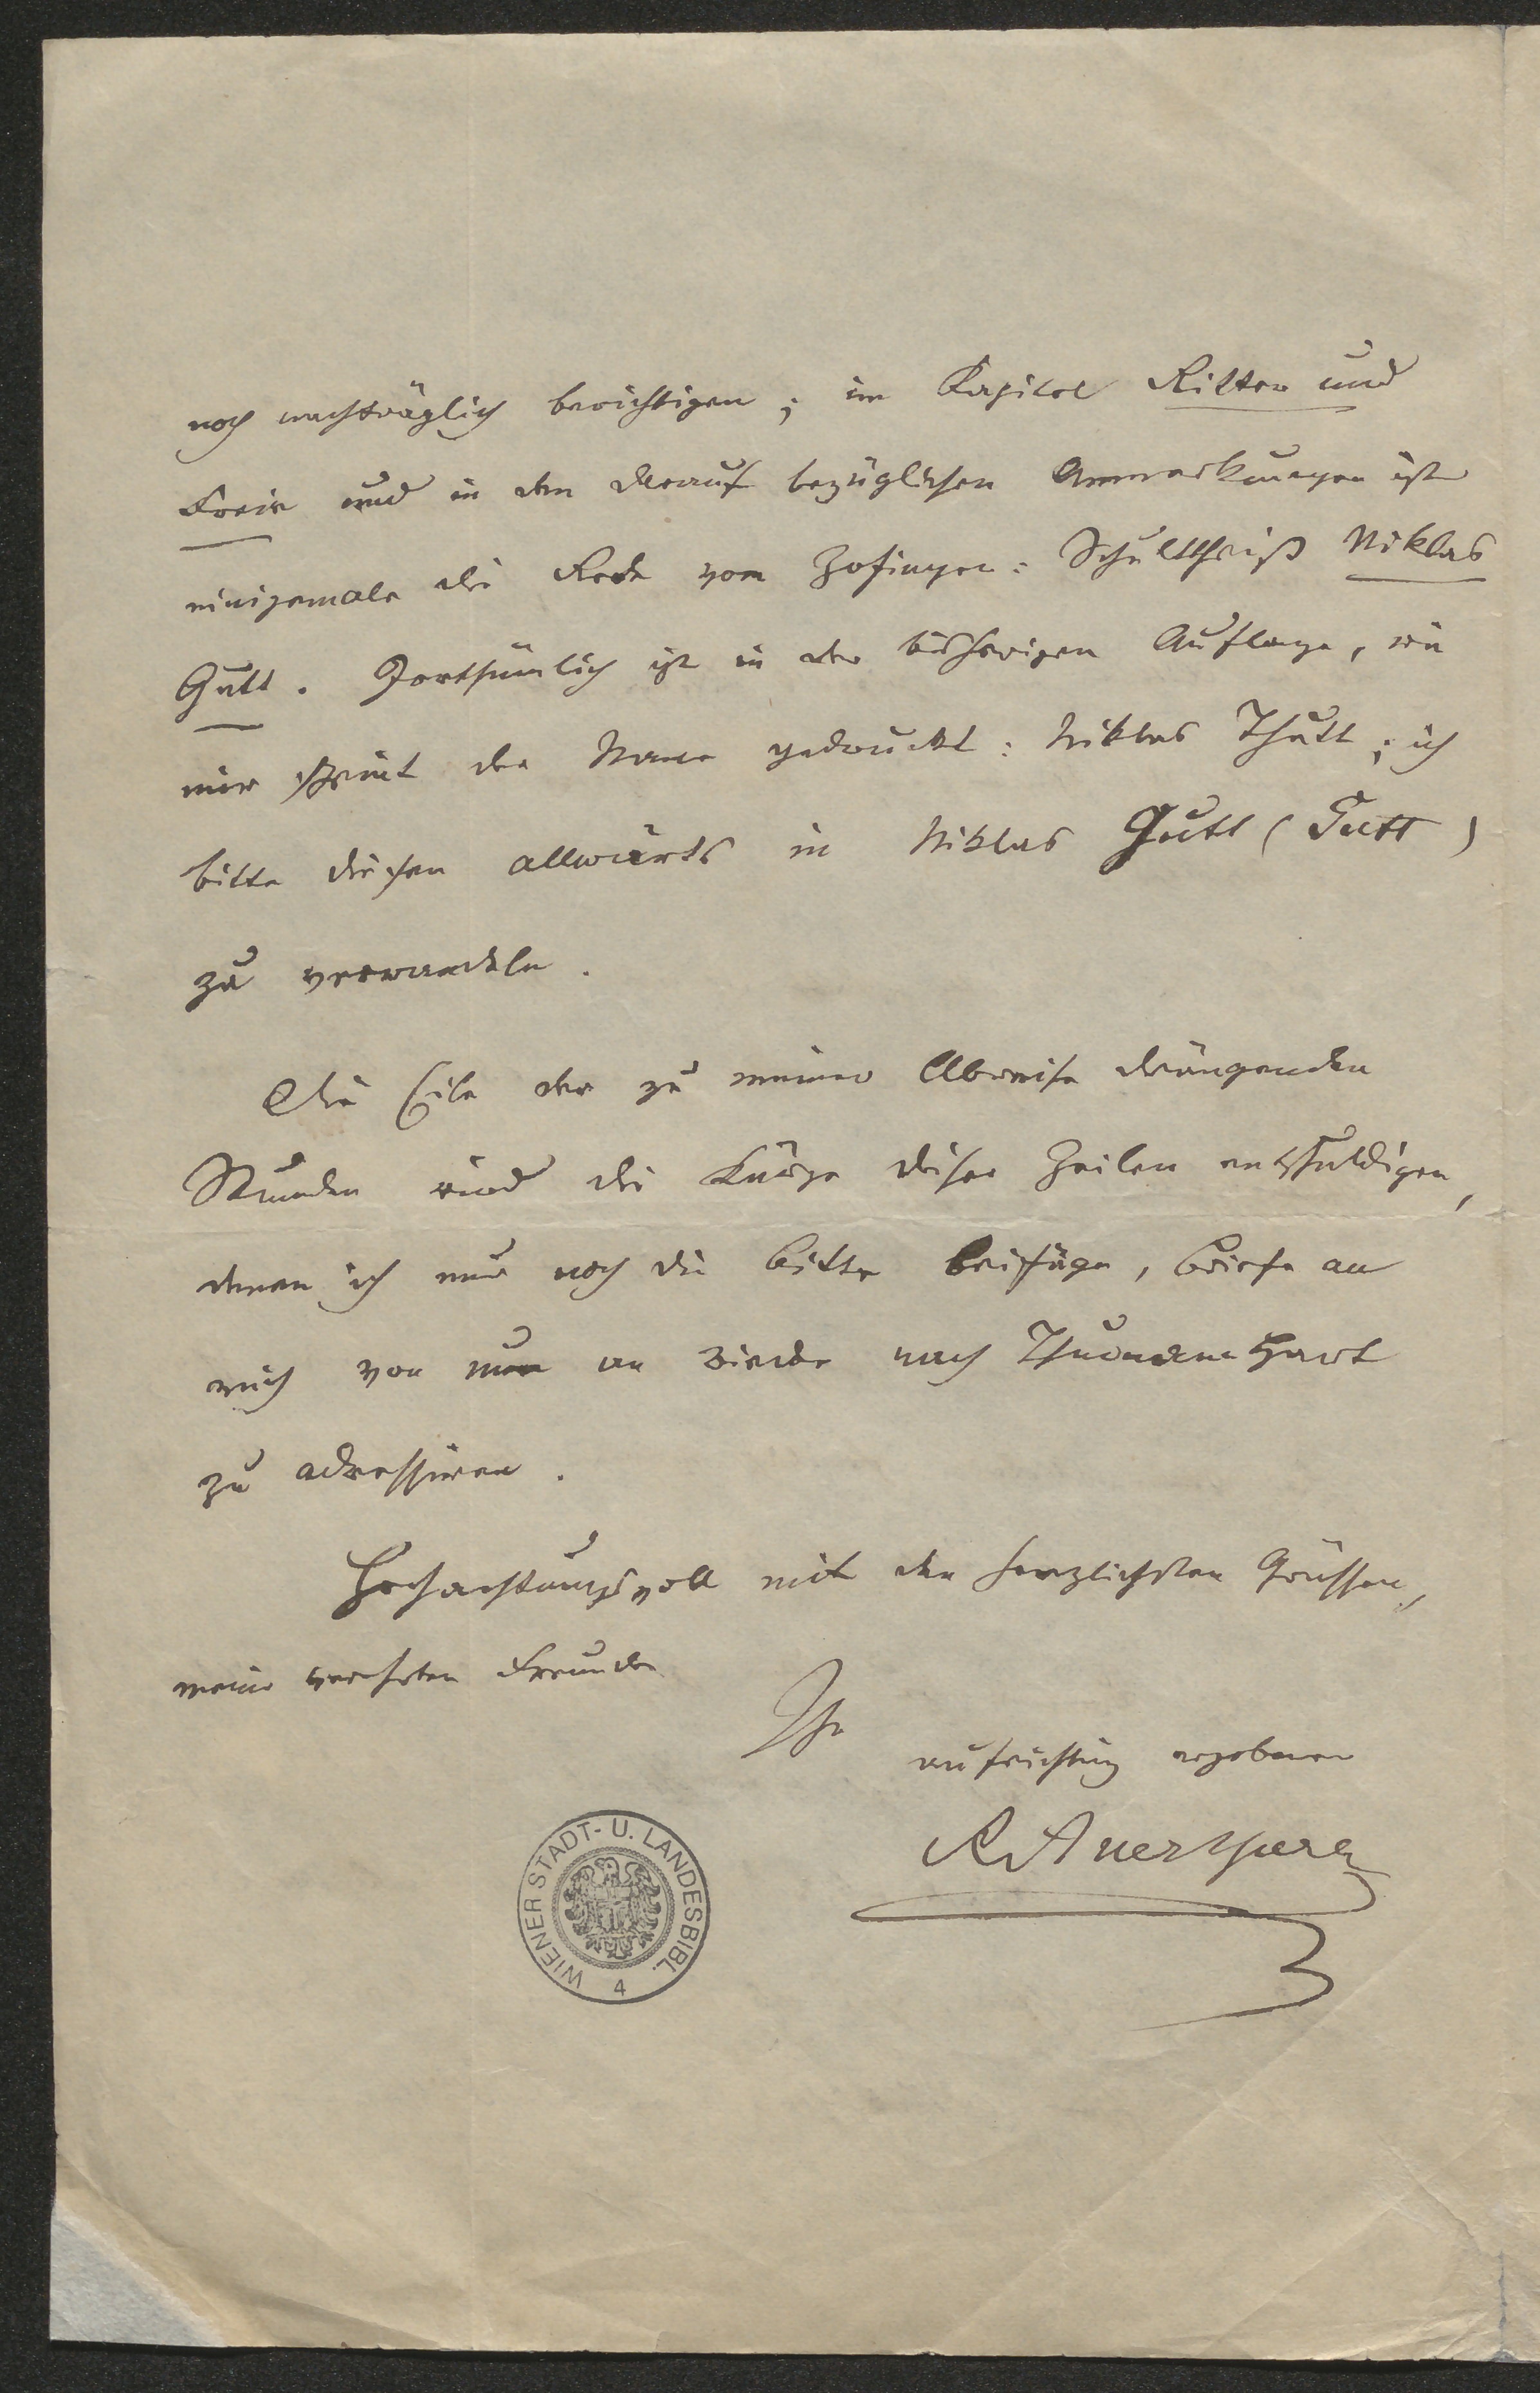 noch nachträglich berichtigen; im Kapitel Ritter und
Freie und in den darauf bezüglichen Anmerkungen ist
einigemale die Rede vom Zofinger: Schultheiß Niklas
Gutt. Irrthümlich ist in der bisherigen Auflage, wie
mir scheint der Name gedruckt: Niklas Thutt; ich
bitte diesen allwärts in Niklas Gutt (Gutt)
zu verwandeln.
Die Eile der zu meiner Abreise drängenden
Stunden wird die Kürze dieser Zeilen entschuldigen,
denen ich nur noch die Bitte beifüge, Briefe an
mich von nun an wieder nach Thurnamhart
zu adressiren.
Hochachtungsvoll mit den herzlichsten Grüssen,
mein verehrter Freund
Ihr
aufrichtig ergebener
AAuersperg
WIENER STADT- U. LANDESBIBL.
4